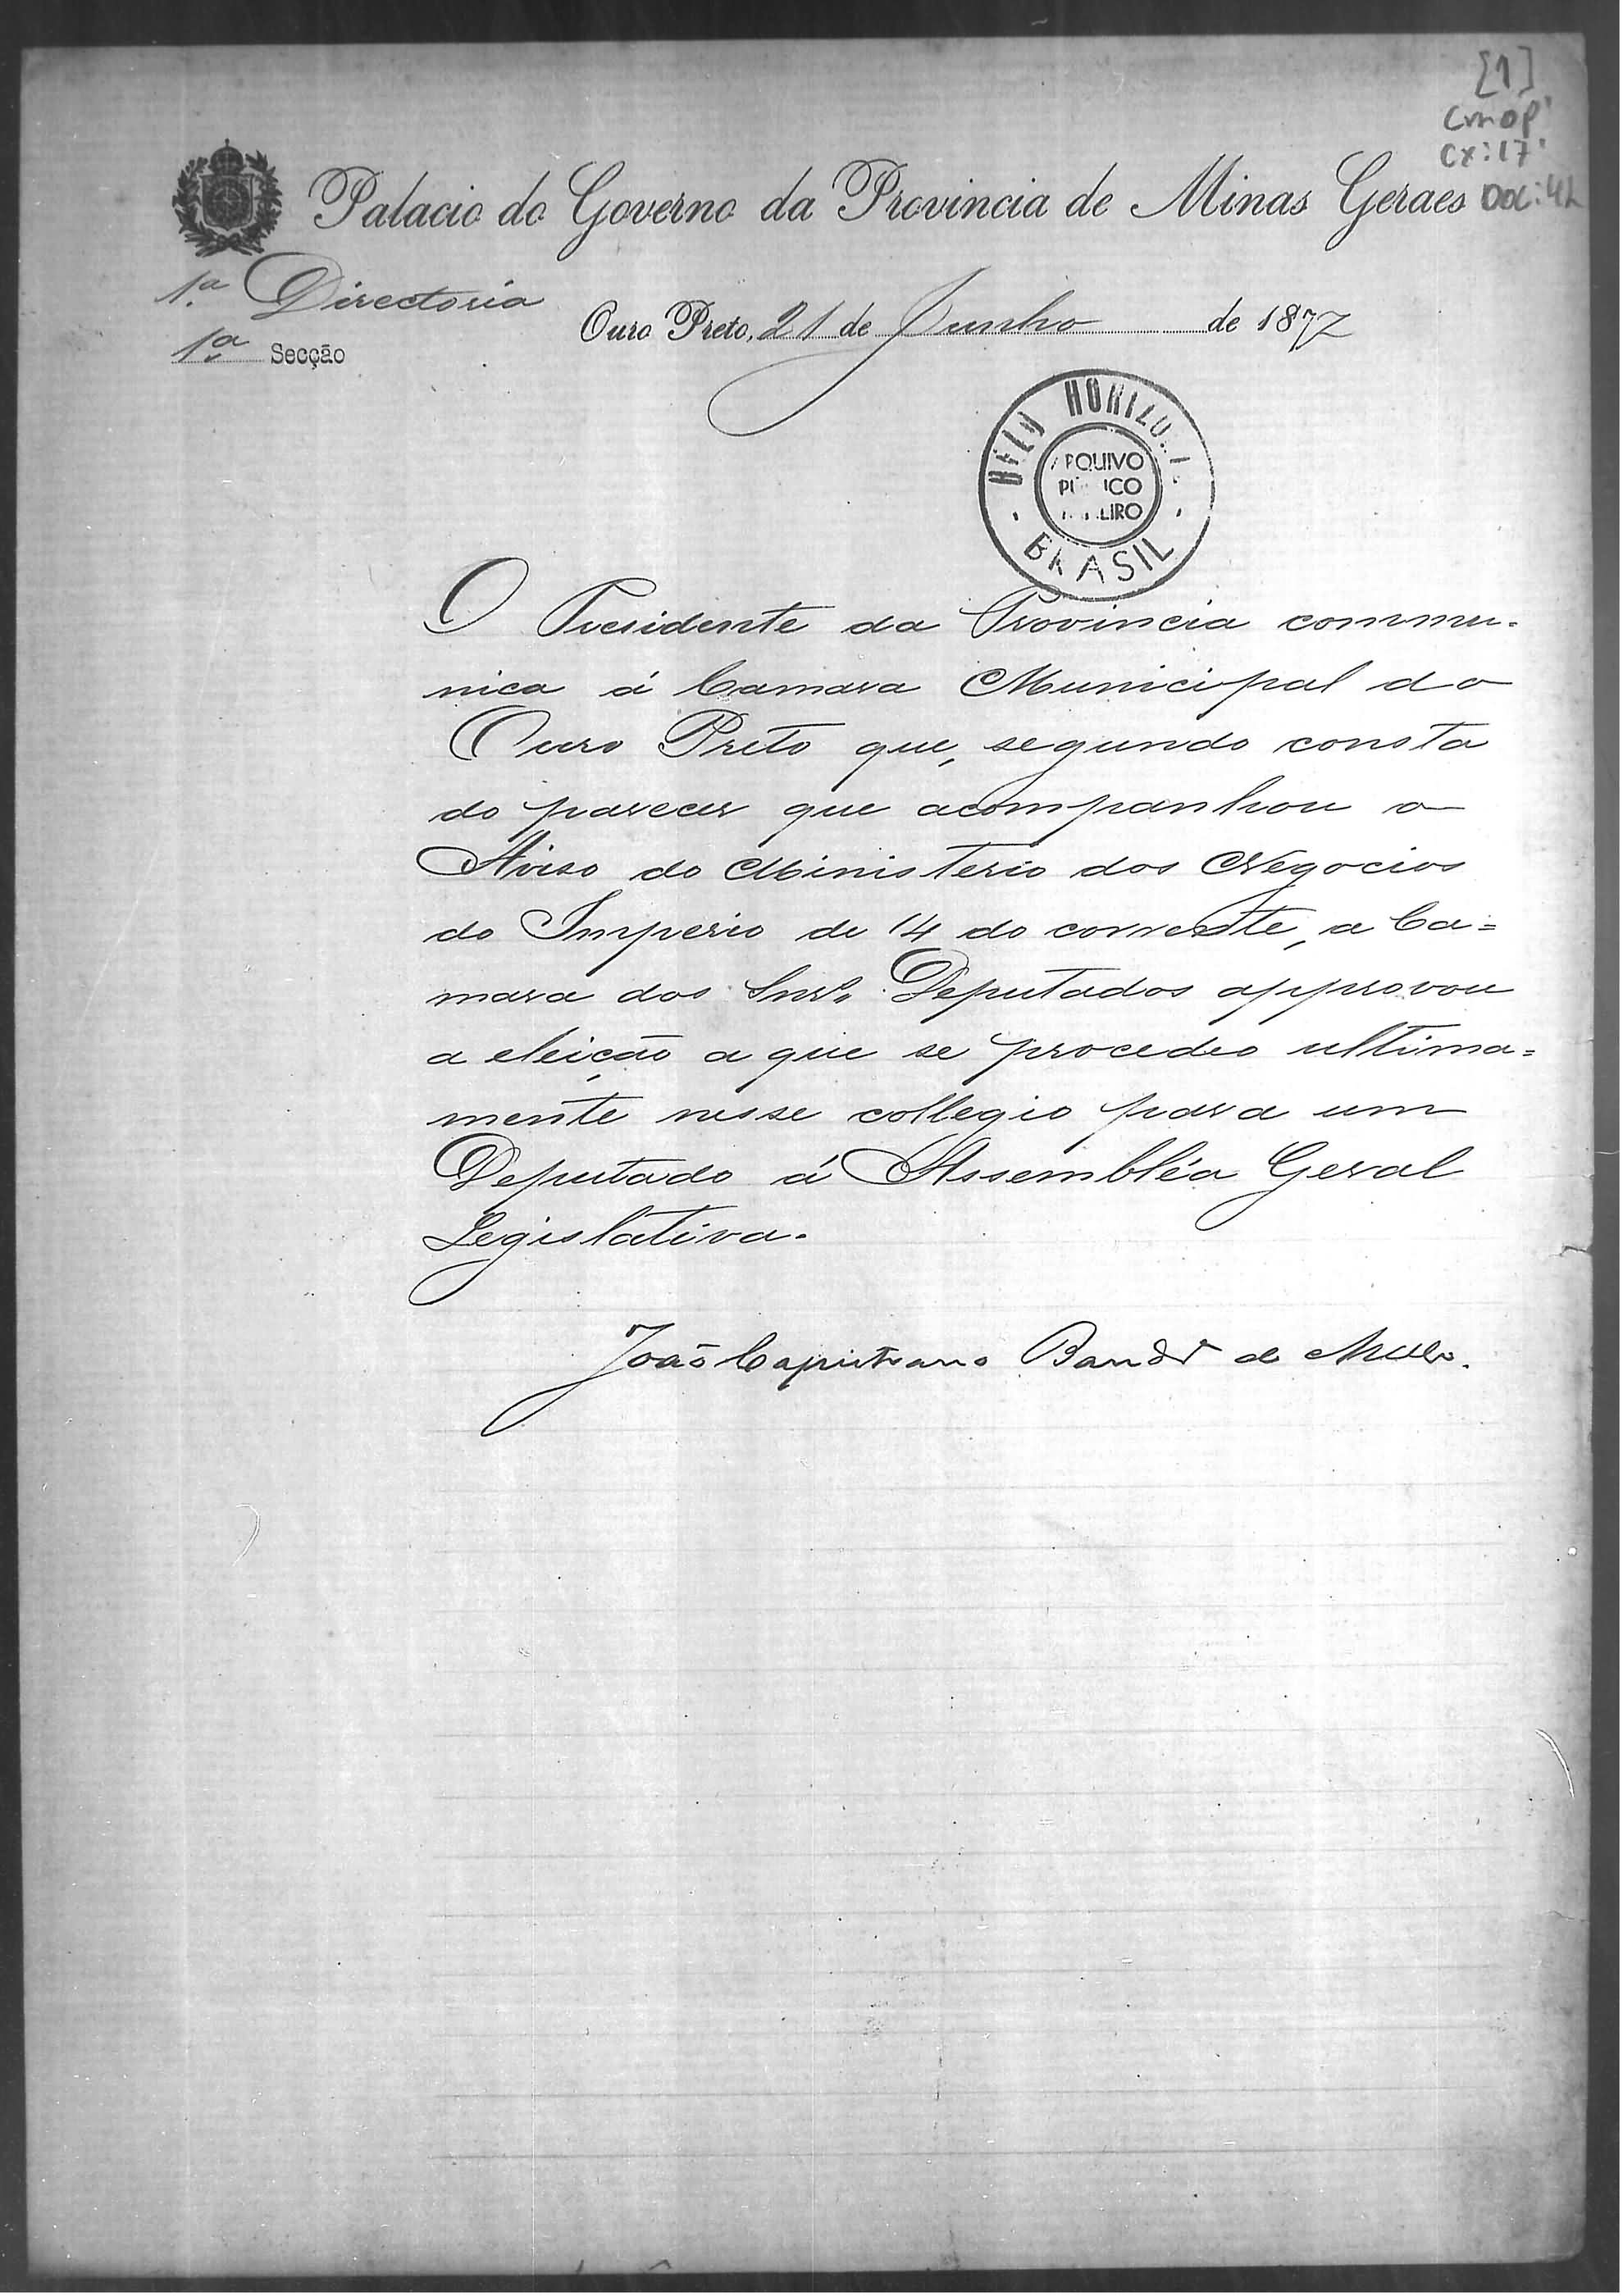 [1]
CMOP
CX: 17
DOC: 42
Palacio do Governo da Provincia de Minas Geraes
1.ª Directoria
1.ª Secção
Ouro Preto, 21 de Junho de 1877
BELO HORIZO
PUBLICO
BRASIL
O Presidente da Provincia commu-
nica á Camara Municipal do
Ouro Preto que, segundo consta
do parecer que acompanhou o
Aviso do Ministerio dos Negocios
do Imperio de 14 do corrente, a Ca=
mara dos Snrs. Deputados approvou
a eleição a que se procedeo ultima=
mente nesse collegio para um
Deputado á Assembléa Geral
Legislativa.
João Capistrano Bandr.ª de Mello.